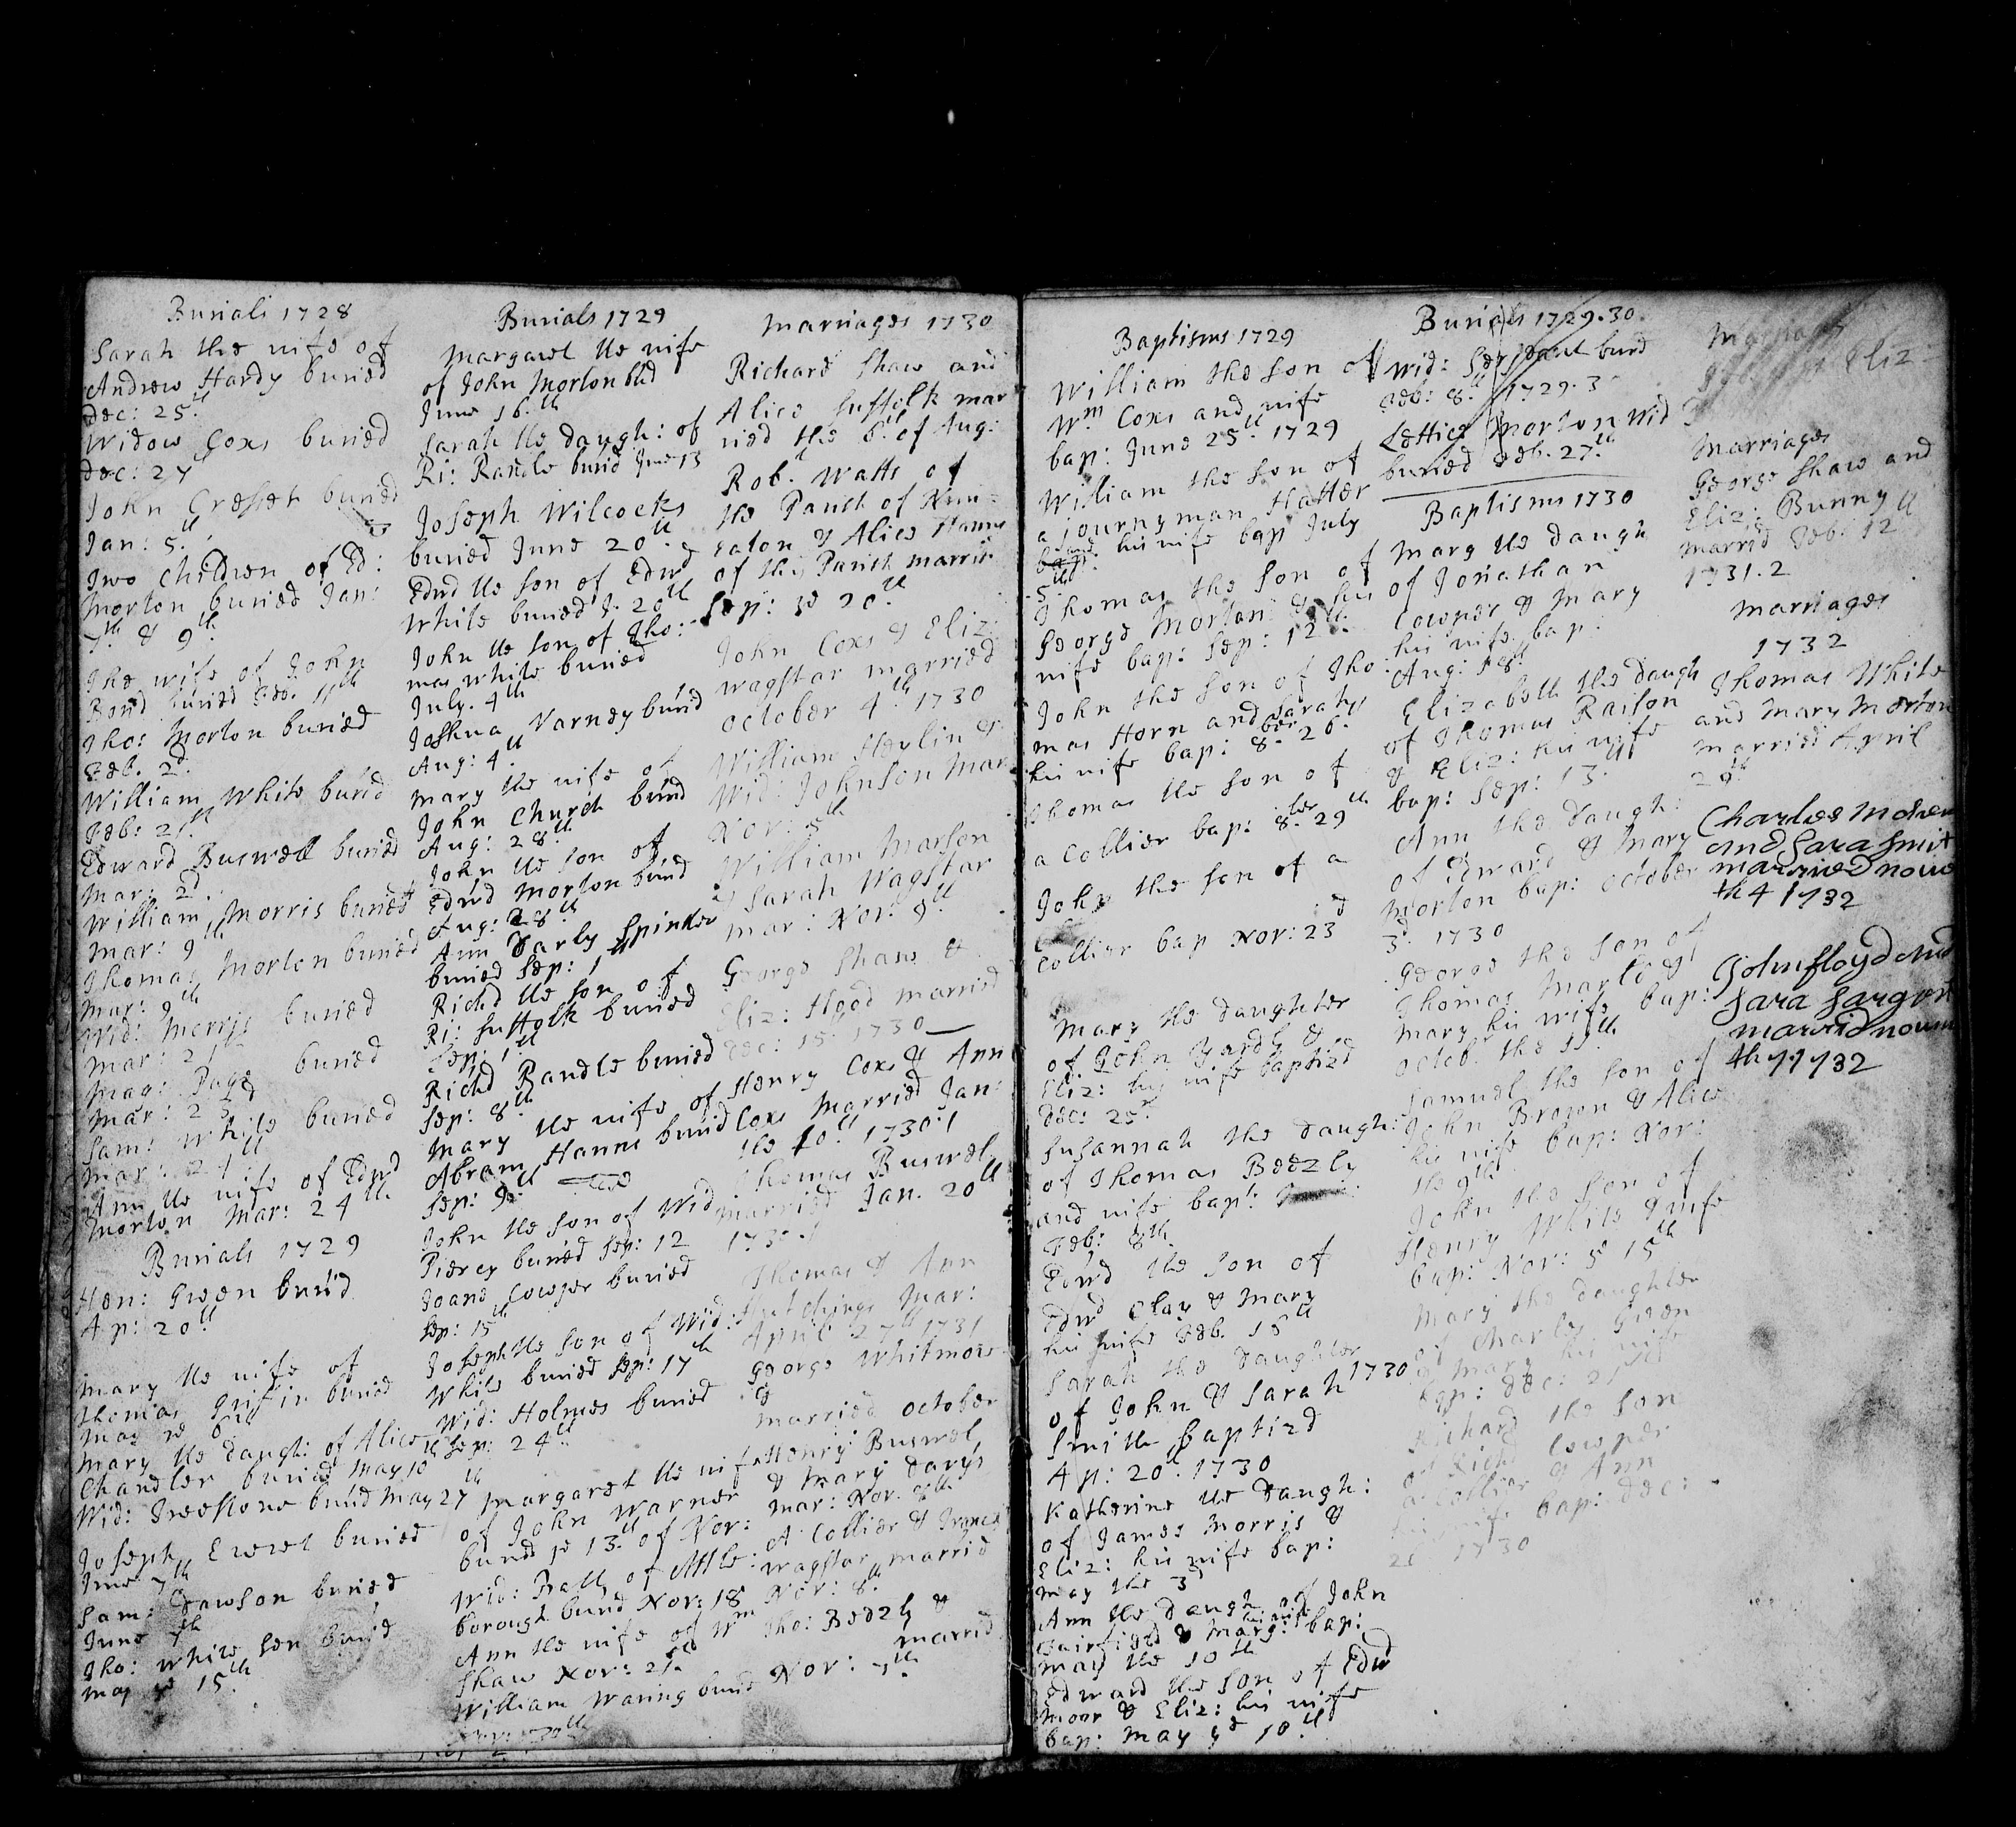 Burials 1728
Sarah the wife of
Andrew Hardy buried
Dec: 25th
Widow Coxs buried
Dec: 27
John Creset buried
Jan: 5th
Two Children of Ed:
Morton buried Jan:
7th & 9th
The wife of John
Bond buried Feb. 11th
Tho: Morton buried
Feb. 2d
William White buried
Feb: 21th
Edward Buswell buried
Mar: 2d
William Morris buried
Mar: 9th
Thomas Morton buried
Mar: 9th
Wid: Morris buried
Mar: 21
Mag: Page buried
Mar: 23
Sam: White buried
Mar: 24th
Ann the wife of Edwd
Morton Mar: 24th
Burials 1729
Hen: Gwen buri'd
Ap: 20th
Mary the wife of
Thomas Grifin buried
May ye 6th
Mary the Daugh: of Alice
Chandler buried May 10th
Wid: Freestone buri'd May 27th
Joseph Ewet buried
June 7th
Sam: Dawson buried
June 7th
Tho: White sen buri'd
May ye 15th
Burials 1729
Margaret the wife
of John Morton bud
June 16.th
Sarah the Daugh: of
Ri: Randle burid June 13
Joseph Wilcocks
buried June 20th
Edwd the son of Edwd
White buried J. 20th
John the son of Tho:
mas White buried
July. 4th
Joshua Varney burid
Aug: 4th
Mary the wife of
John Church burid
Aug: 28th
John the son of
Edwd Morton burid
Aug: 28th
Ann Darly Spinster
buried Sep: 1th
Richd the son of
Ri: Suffolk buried
Sep: 1th
Richd Randle buried
Sep: 8th
Mary the wife of
Abram Hanns burid
Sep: 9th
John the son of Wid
Piercy buried Sep: 12
Joane Cowper buried
Sep: 15th
Joseph the son of Wid:
White buried Sep: 17th
Wid: Holmes buried
Sep: 24th
Margaret the wife
of John Warner
buried ye 13th of Nor:
Wid: Ball of Attle:
borough burid Nor: 18
Ann the wife of Wm
Shaw Nor: 21th
William Waring burid
Marriages 1730
Richard Shaw and
Alice Suffolk mar
ried the 6th of Aug:
Rob. Watts of
the Parish of Nun=
eaton & Alice Hanns
of this Parish married
Sep: ye 20th
John Coxs & Eliz:
Wagstar married
October 4th 1730
William Hevlin &
Wid: Johnson Mar
Nor: 5th
William Marson
& Sarah Wagstar
Mar: Nor: 9th
George Shaw &
Eliz: Hood married
Dec: 15th 1730
Henry Coxs & Ann
Coxs Married Jan:
the 10th 1730:1
Thomas Buswel
married Jan. 20th
1730.1
Thomas & Ann
Hutchings Mar:
April 27th 1731
George Whitmore
&
married October
Henry Buswel
& Mary Davys
Mar: Nor. 7th
A Collier & Frances
Wagstar married
Nor: 8th
Tho: Bedzly &
married
Nor: 7th
Baptisms 1729
William the son of
Wm Coxs and wife
bap: June 25th 1729
William the son of
a journyman Hatter
and his wife bap July
5th
Thomas the son of
George Morton & his
wife bap: Sep: 12th
John the son of Tho:
mas Horn and Sarah
his wife bap: 8ber 26.
Thomas the son of
a Collier bap: 8ber 29th
John the son of a
Collier bap Nor: 23d
Mary the Daughter
of John Yardly &
Eliz: his wife baptizd
Dec: 25th
Susannah the Daugh:
of Thomas Bedzly
and wife bap:
Feb: 8th
Edwd the son of
Edwd Clay & Mary
his wife Feb. 18th
Sarah the Daughter 1730
of John & Sarah
Smith baptizd
Ap: 20th 1730
Katherine the Daugh:
of James Morris &
Eliz: his wife bap:
May the 3d
Ann the Daugh of John
Fairfield & Marg: his wife bap:
May the 10th
Edward the son of Edwd
Moor & Eliz: his wife
bap: May ye 10th
Burials 1729.30.
Wid: Serjeant burid
Feb: 8th 1729.30
Lettice Morton Wid
buried Feb. 27th
Baptisms 1730
Mary the Daugh
of Jonathan
Cowper & Mary
his wife bap:
Aug: 18th
Elizabeth the Daugh
of Thomas Raison
& Eliz: his wife
bap: Sep: 13th
Ann the Daugh:
of Edward & Mary
Morton bap: October
3d 1730
George the son of
Thomas Marle &
Mary his wife bap:
Octob. the 11th
Samuel the son of
John Brown & Alice
his wife bap: Nor:
the 9th
John the son of
Henry White & wife
bap: Nor: ye 15th
Mary the Daughter
of Charles Gwen
& Mary his wife
bap: Dec: 21
Richard the son
of Richd Cowper
a Collier & Ann
his wife bap: Dec:
1730
Marriages
Eliz
Marriages
George Shaw and
Eliz: Bunny
married Feb: 12th
1731.2
Marriages
1732
Thomas White
and Mary Morton
married April
Charles
and Sara Smit
married nove
th 4 1732
John floyd and
Sara Sargent
marrid novem
th 7 1732